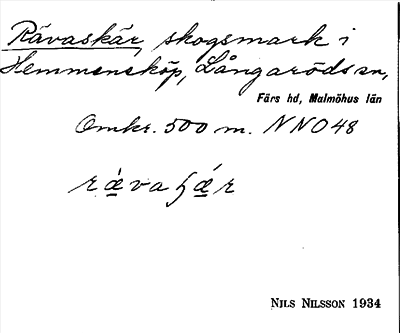 Rävaskär, skogsmark i
Hemmensköp, Långaröds sn,
Färs hd, Malmöhus län
Omkr. 500 m. NNO 48
NILS NILSSON 1934